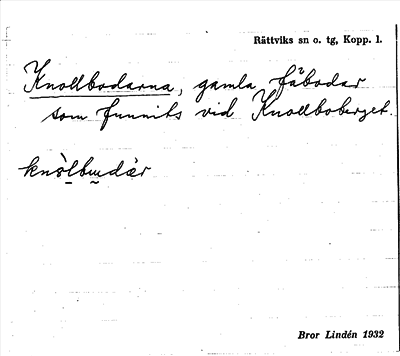 Rättviks sn o. tg, Kopp. l.
Knollbodarna, gamla fäbodar
som funnits vid Knollboberget.
Bror Lindén 1932